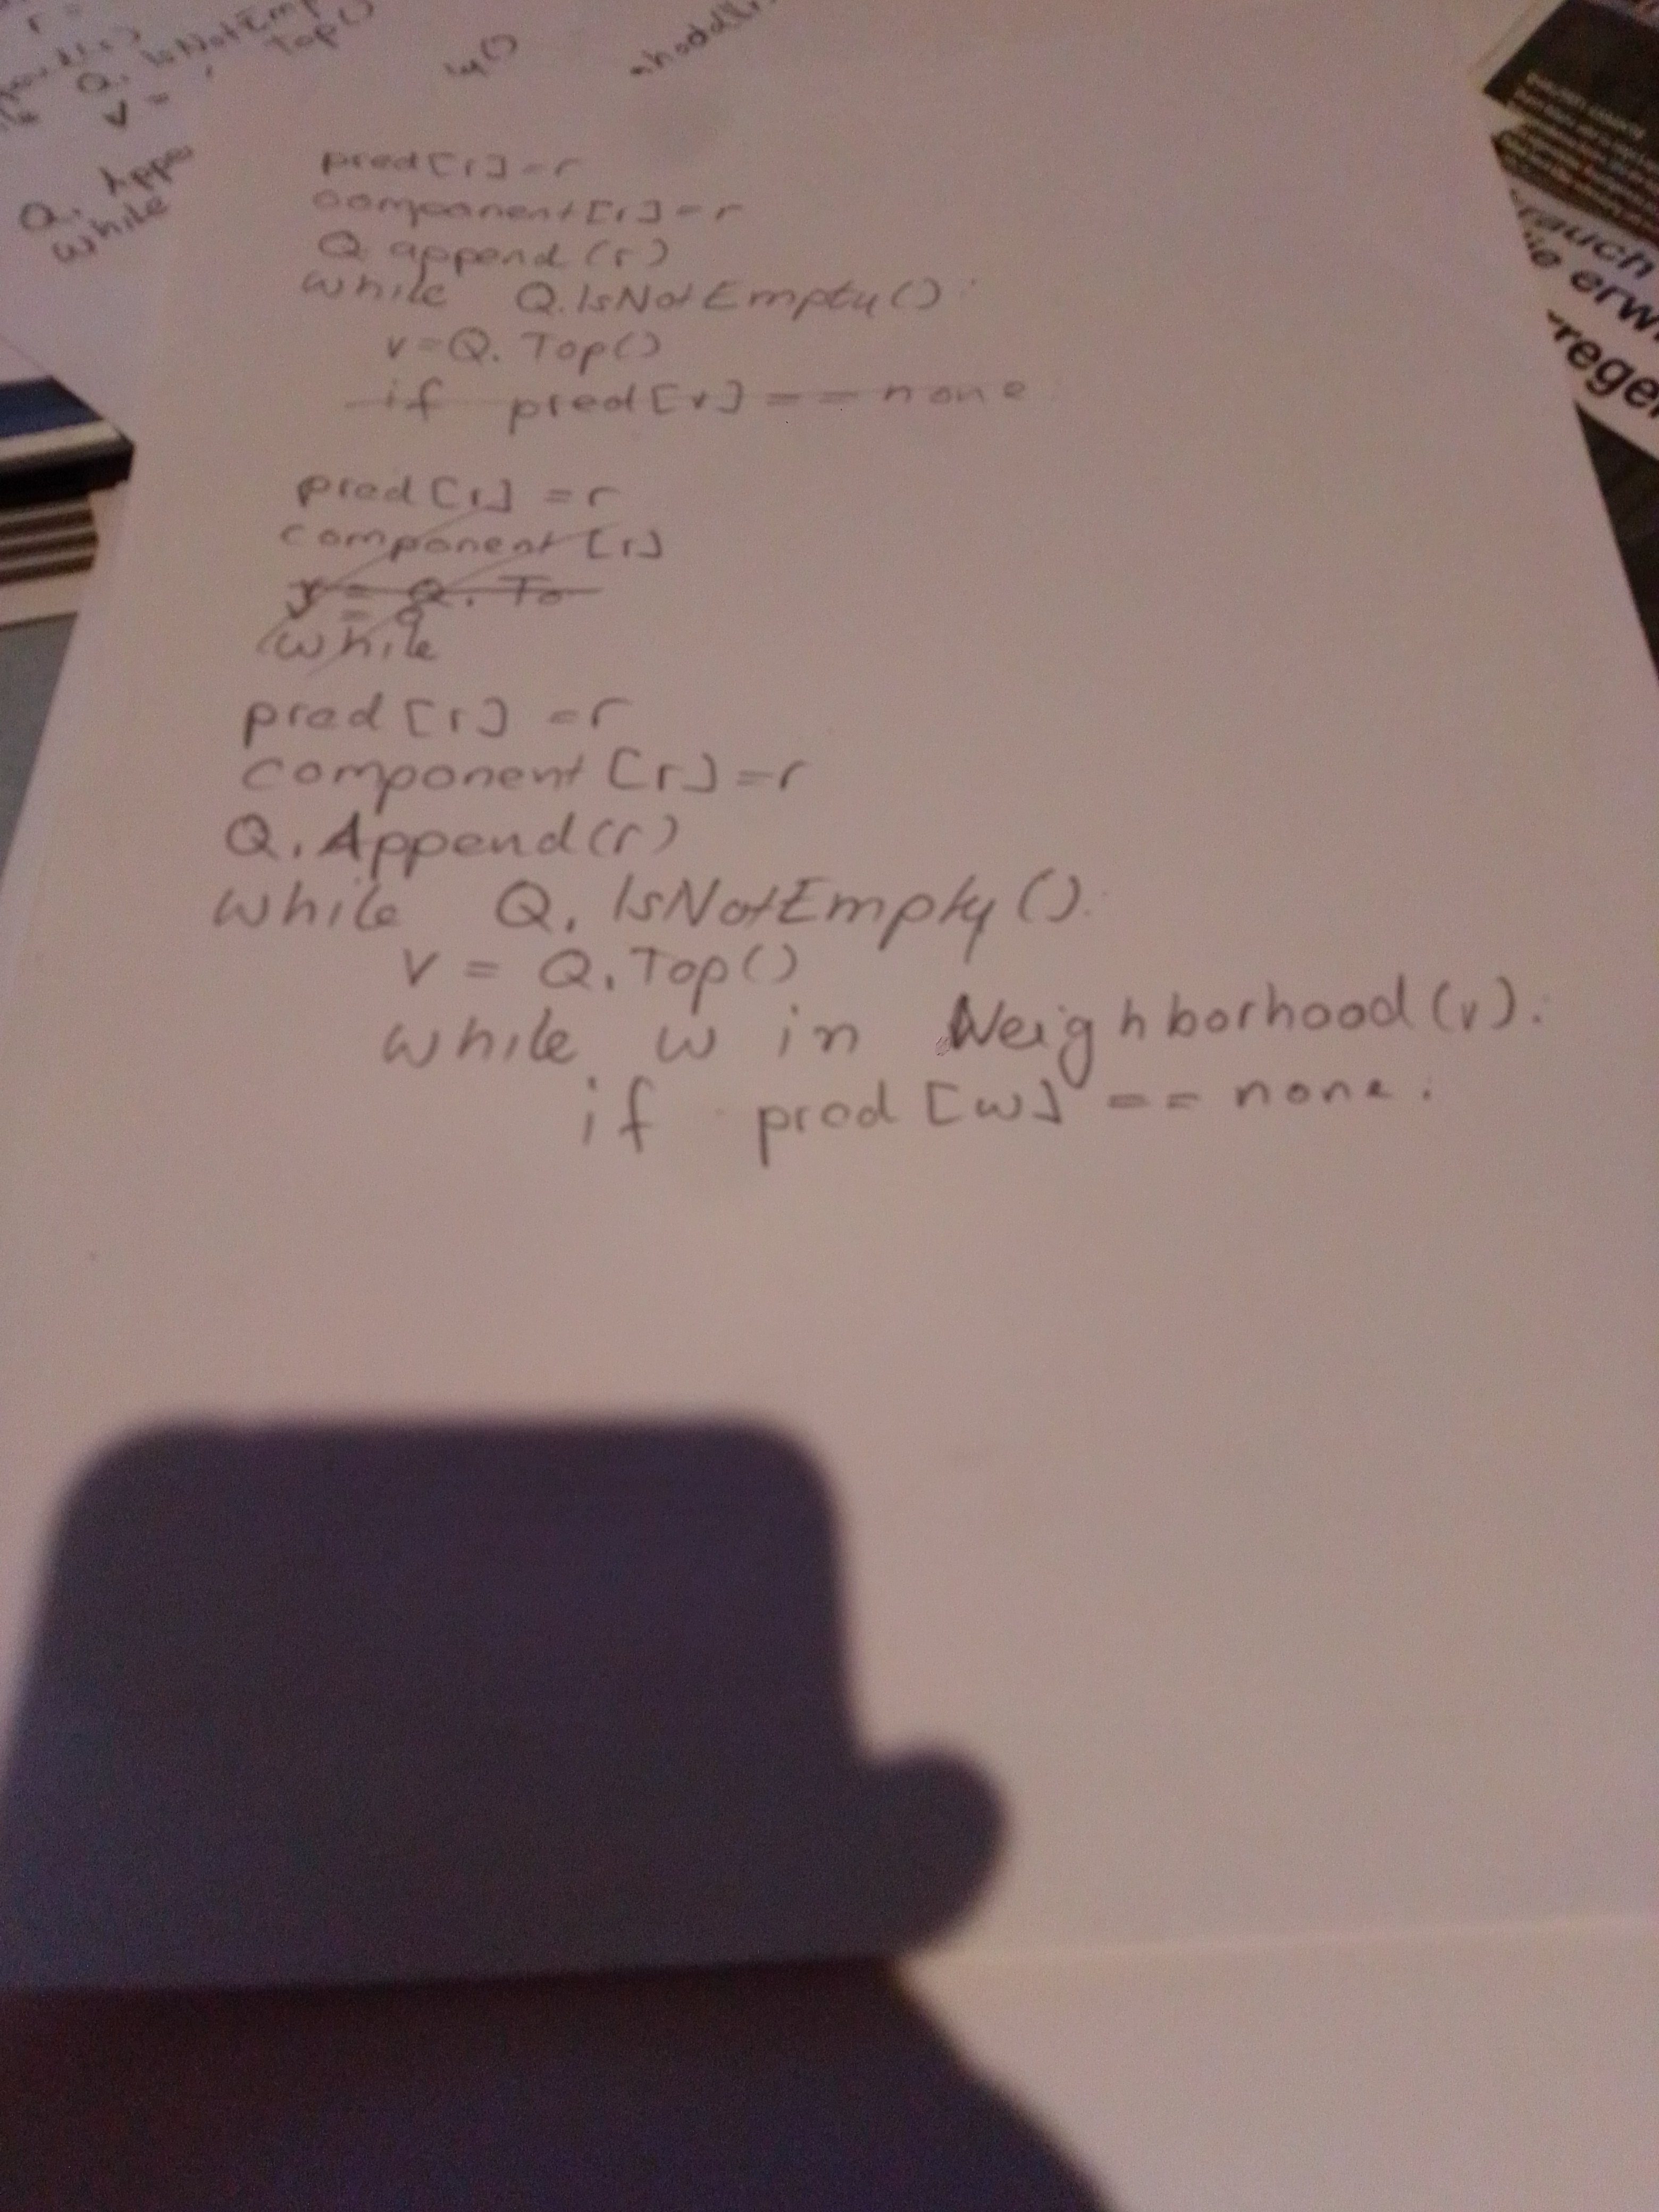 Q. IsNotEmp
Top()
V =
Q. Appe
while
pred[r]=r
component[r]=r
Q append(r)
while Q.IsNotEmpty():
v=Q. Top()
if pred[v]==none
pred[r] =r
component [r]
= Q. To
while
pred[r] =r
component [r]=r
Q. Append(r)
while Q. IsNotEmpty():
v = Q. Top()
while w in Neighborhood(v):
if pred[w] == none:
rauch
ie erw
rege